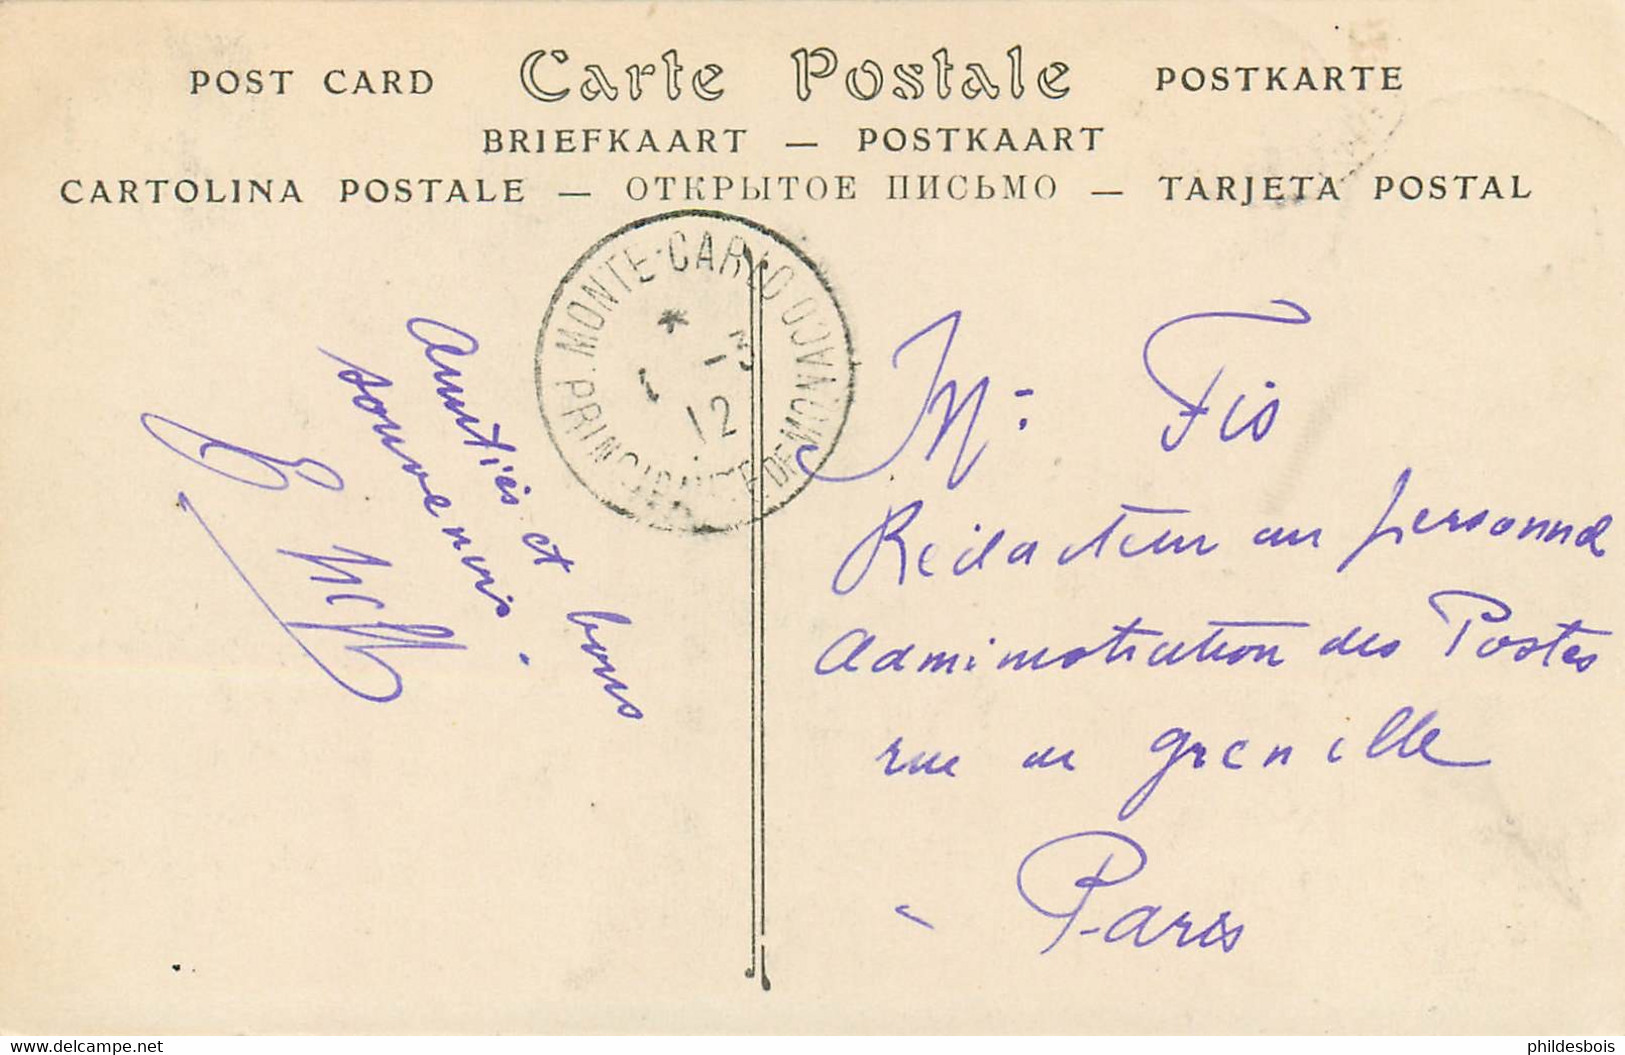 POST CARD Carte Postale POSTKARTE
BRIEFKAART — POSTKAART
CARTOLINA POSTALE — ОТКРЫТОЕ ПИСЬМО — TARJETA POSTAL
MONTE-CARLO
PRINCIPAUTE DE MONACO
12
Amitiés et bons
souvenirs.
Mr Fis
Rédacteur au personnel
Administration des Postes
rue de Grenelle
Paris
Delcampe.net
phildesbois